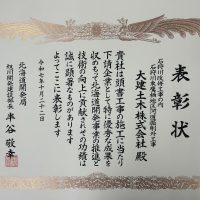 表彰状
石狩川改修工事の内
石狩川東雁来地区河道掘削外工事
大建土木株式会社 殿
貴社は頭書工事の施工に当たり
下請企業として特に優秀な成果を
収めもって北海道開発事業の推進と
技術の向上に貢献されその功績は
誠に顕著なものがあります
よってここに表彰します
令和七年十月二十二日
北海道開発局
旭川開発建設部長 半谷敬幸